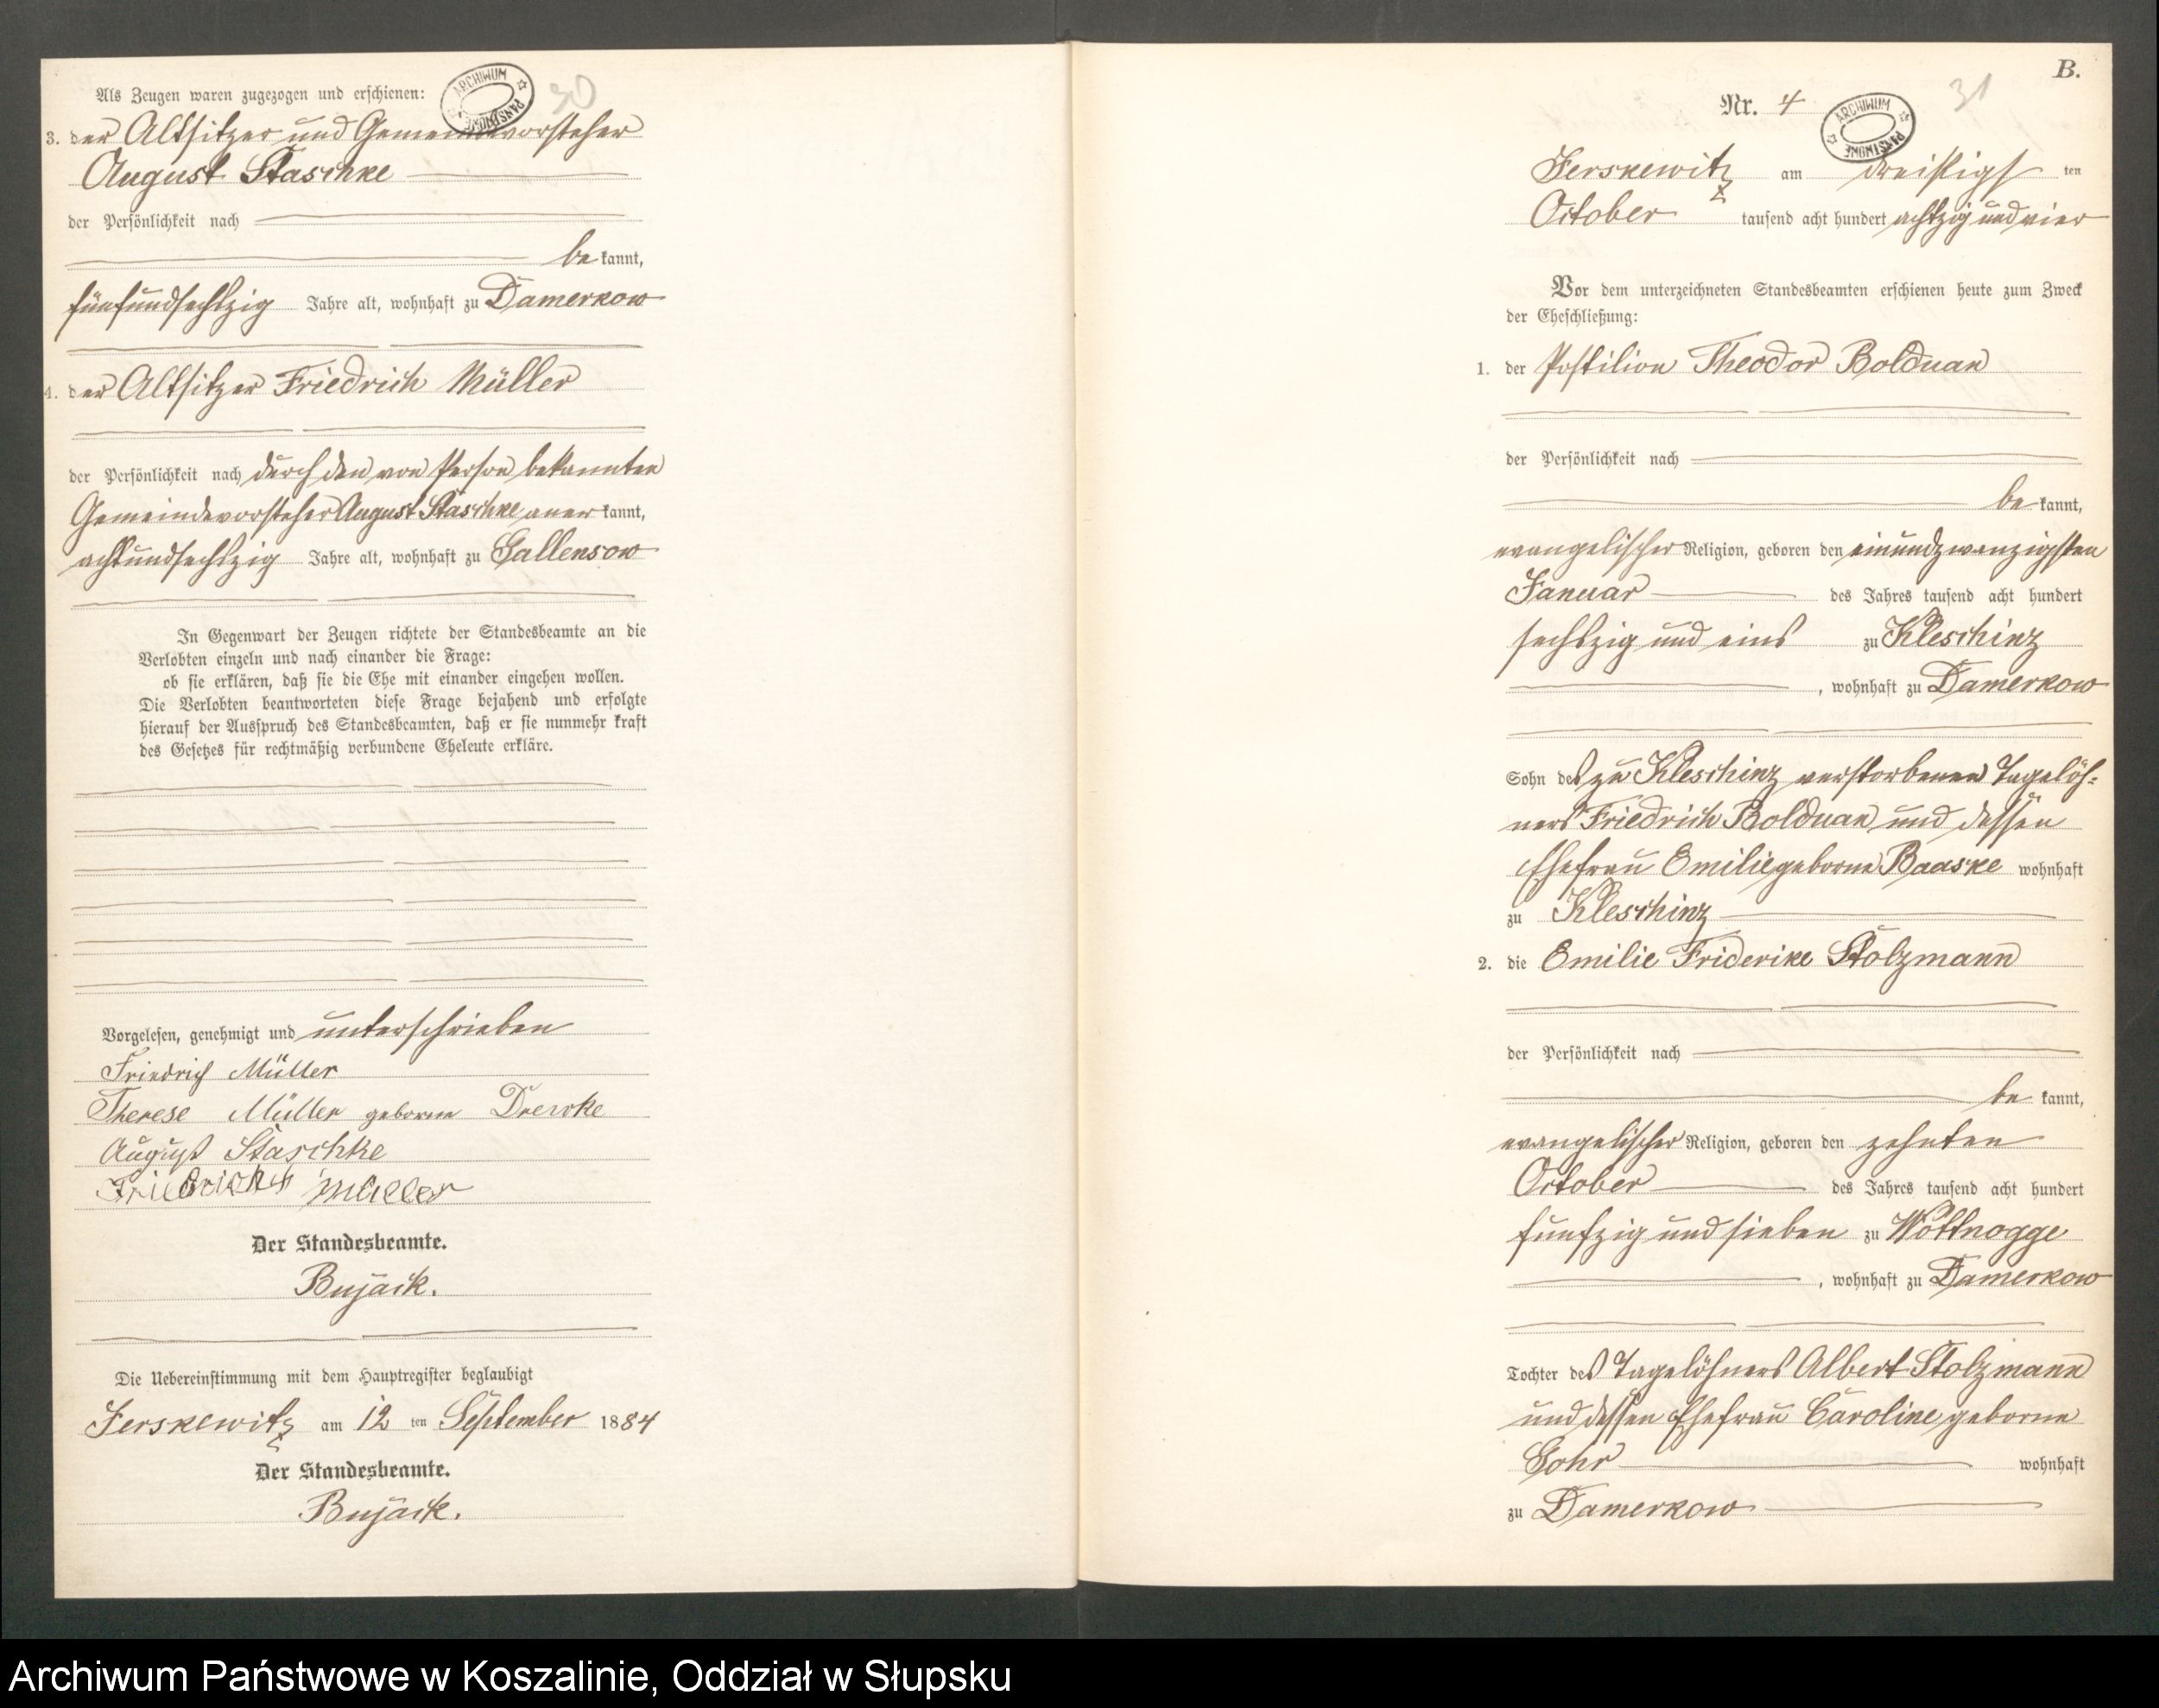 Als Zeugen waren zugezogen und erschienen:
ARCHIWUM PAŃSTWOWE
30
3. der Altsitzer und Gemeindevorsteher
August Staschke
der Persönlichkeit nach
be kannt,
fünfundsechszig Jahre alt, wohnhaft zu Damerkow
4. der Altsitzer Friedrich Müller
der Persönlichkeit nach durch den von Person bekannten
Gemeindevorsteher August Staschke aner kannt,
achtundsechszig Jahre alt, wohnhaft zu Gallensow
In Gegenwart der Zeugen richtete der Standesbeamte an die
Verlobten einzeln und nach einander die Frage:
ob sie erklären, daß sie die Ehe mit einander eingehen wollen.
Die Verlobten beantworteten diese Frage bejahend und erfolgte
hierauf der Ausspruch des Standesbeamten, daß er sie nunmehr kraft
des Gesetzes für rechtmäßig verbundene Eheleute erkläre.
Vorgelesen, genehmigt und unterschrieben
Friedrich Müller
Therese Müller geborne Drewke
August Staschke
Friedrich Müller
Der Standesbeamte.
Bujack.
Die Uebereinstimmung mit dem Hauptregister beglaubigt
Jerskewitz am 12 ten September 1884
Der Standesbeamte.
Bujack.
B.
Nr. 4
ARCHIWUM PAŃSTWOWE
31
Jerskewitz am dreißigst ten
October tausend acht hundert achtzig und vier
Vor dem unterzeichneten Standesbeamten erschienen heute zum Zweck
der Eheschließung:
1. der Postilion Theodor Bolduan
der Persönlichkeit nach
be kannt,
evangelischer Religion, geboren den einundzwanzigsten
Januar des Jahres tausend acht hundert
sechszig und eins zu Kleschinz
, wohnhaft zu Damerkow
Sohn des zu Kleschinz verstorbenen Tagelöh-
ners Friedrich Bolduan und dessen
Ehefrau Emilie geborne Baaske wohnhaft
zu Kleschinz
2. die Emilie Friderike Stolzmann
der Persönlichkeit nach
be kannt,
evangelischer Religion, geboren den zehnten
October des Jahres tausend acht hundert
funfzig und sieben zu Wottnogge
, wohnhaft zu Damerkow
Tochter des Tagelöhners Albert Stolzmann
und dessen Ehefrau Caroline geborne
Gohr wohnhaft
zu Damerkow
Archiwum Państwowe w Koszalinie, Oddział w Słupsku